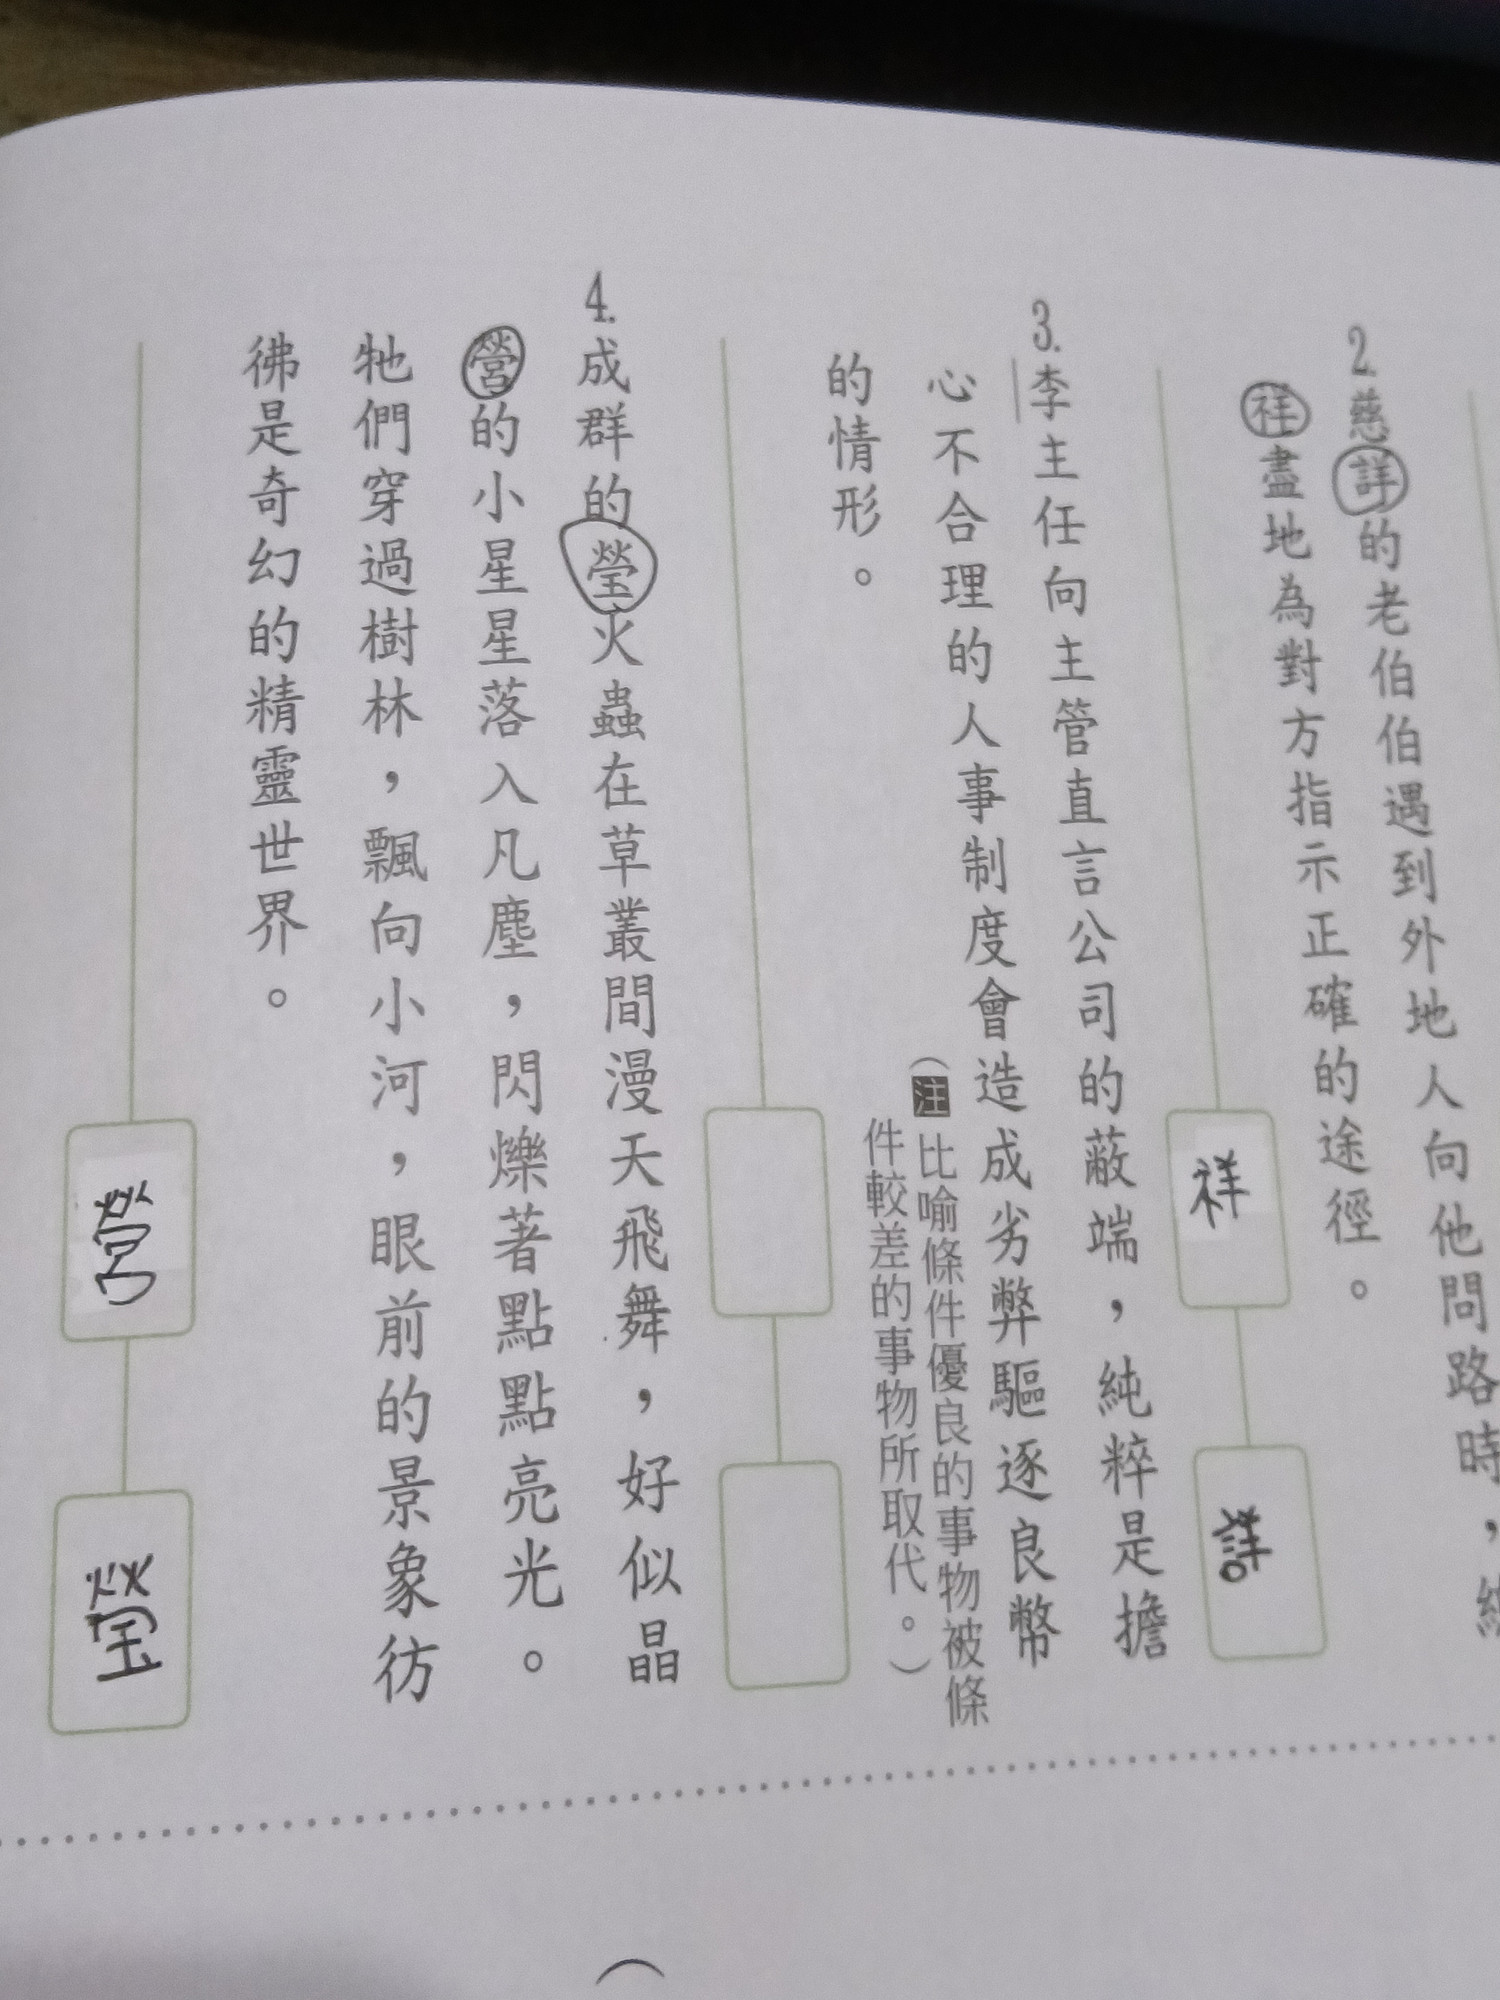 2.慈詳的老伯伯遇到外地人向他問路時，
祥盡地為對方指示正確的途徑。
祥
詳
3.李主任向主管直言公司的蔽端，純粹是擔
心不合理的人事制度會造成劣弊驅逐良幣
（注比喻條件優良的事物被條
件較差的事物所取代。）
的情形。
4.成群的瑩火蟲在草叢間漫天飛舞，好似晶
營的小星星落入凡塵，閃爍著點點亮光。
牠們穿過樹林，飄向小河，眼前的景象彷
彿是奇幻的精靈世界。
營
瑩
（